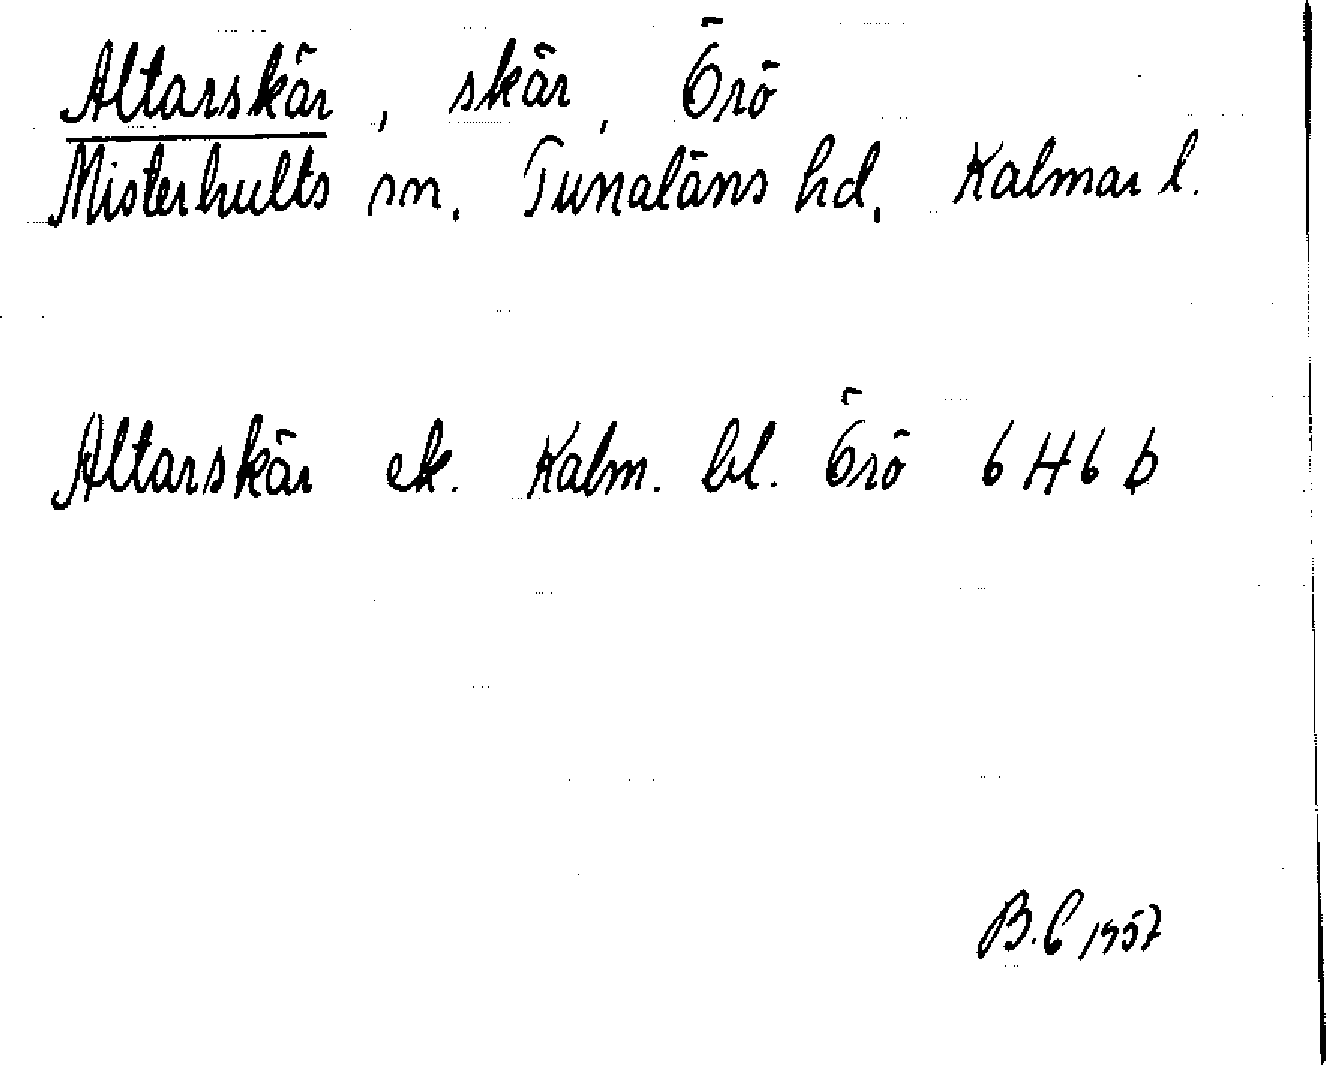 Altarskär, skär, Örö
Misterhults sn. Tunaläns hd. Kalmar l.
Altarskär ek. Kalm. bl. Örö 6 H 6 b
B. C 1957